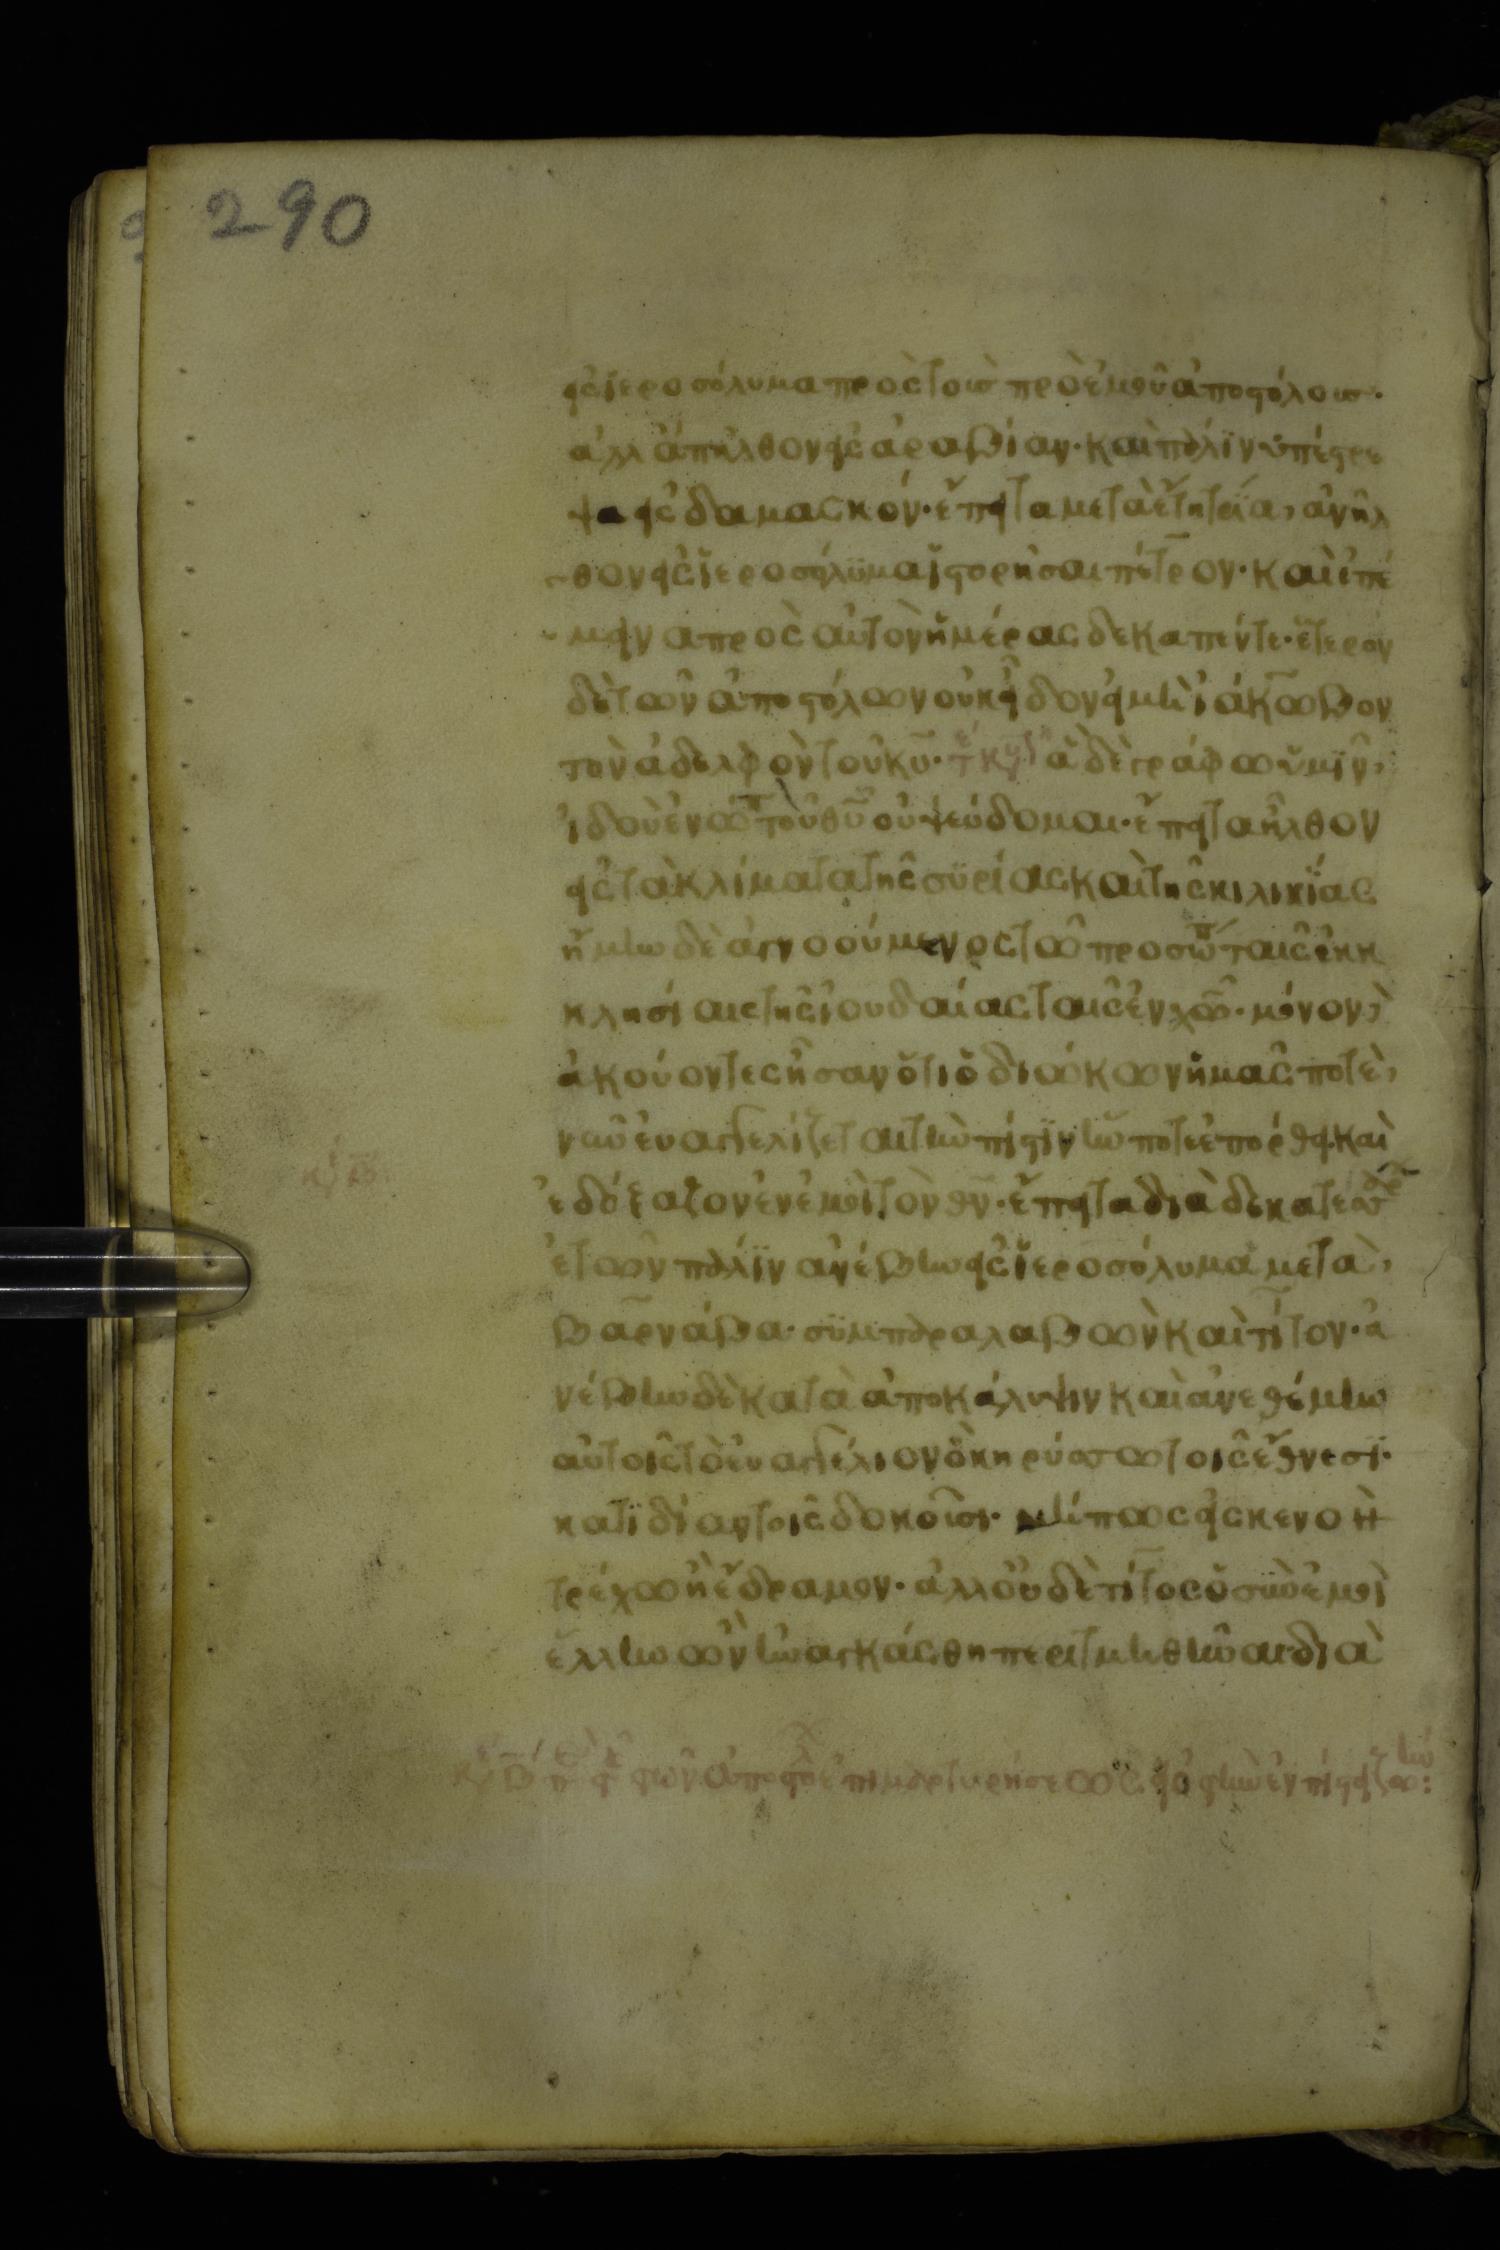 290
εἰς ἱεροσόλυμα πρὸς τοὺς πρὸ ἐμοῦ ἀποστόλους·
ἀλλ ἀπῆλθον εἰς ἀραβίαν· καὶ πάλϊν ὑπέστρε
ψα εἰς δαμασκόν· ἔπειτα μετὰ ἔτη τρία, ἀνῆλ
θον εἰς ἱεροσόλϋμα ἱστορῆσαι πέτρον· καὶ ἐπέ
μεινα πρὸς αὐτὸν ἡμέρας δεκαπέντε· ἕτερον
δὲ τῶν ἀποστόλων οὐκ εἶδον εἰ μὴ ἰάκωβον
τὸν ἀδελφὸν τοῦ κυ· ἃ δὲ γράφω ὑμῖν,
ἰδοὺ ἐνώπ τοῦ θυ οὐ ψεύδομαι· ἔπειτα ἦλθον
εἰς τὰ κλίματα τῆς συρίας καὶ τῆς κιλικΐας
ἤμην δὲ ἀγνοούμενος τῶ προσώπ ταῖς ἐκ
κλησίαις τῆς ἰουδαίας ταῖς ἐν χω· μόνον,
ἀκούοντες ἦσαν ὅτι ὁ διώκων ἡμᾶς ποτὲ,
νῦν ἐυαγγελίζεται τὴν πίστϊν ἣν ποτε ἐπόρθει· καὶ
ἐδόξαζον ἐν ἐμοὶ τὸν θν· ἔπειτα διὰ δεκατεσσάρ
ἐτῶν πάλϊν ἀνέβην εἰς ἱεροσόλυμα μετὰ,
βαρνάβα· σϋμπαραλαβὼν καὶ τίτον· ἀ
νέβην δὲ κατὰ ἀποκάλυψιν καὶ ἀνεθέμην
αὐτοῖς τὸ ἐυαγγέλιον ὃ κηρύσσω τοῖς ἔθνεσϊ·
κατϊδίαν τοῖς δοκοῦσι· μήπως εἰς κενὸν
τρέχω ἢ ἔδραμον· ἀλλ οὐδὲ τίτος ὁ σὺν ἐμοὶ
ἕλλην ὢν ἠναγκάσθη περιτμηθῆναι· διὰ